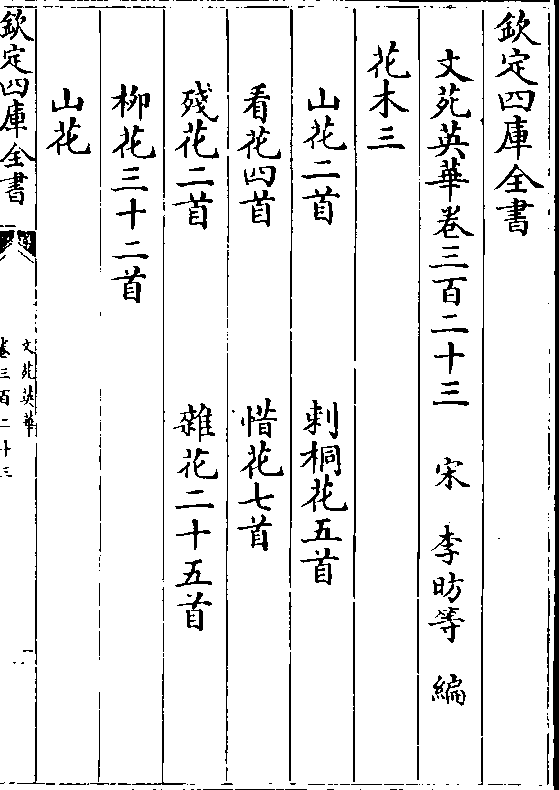 欽定四庫全書
文苑英華卷三百二十三 宋 李昉等 編
花木三
山花二首 刺桐花五首
看花四首 惜花七首
殘花二首 雜花二十五首
柳花三十二首
山花
欽定四庫全書
文苑英華
卷三百二十三
一